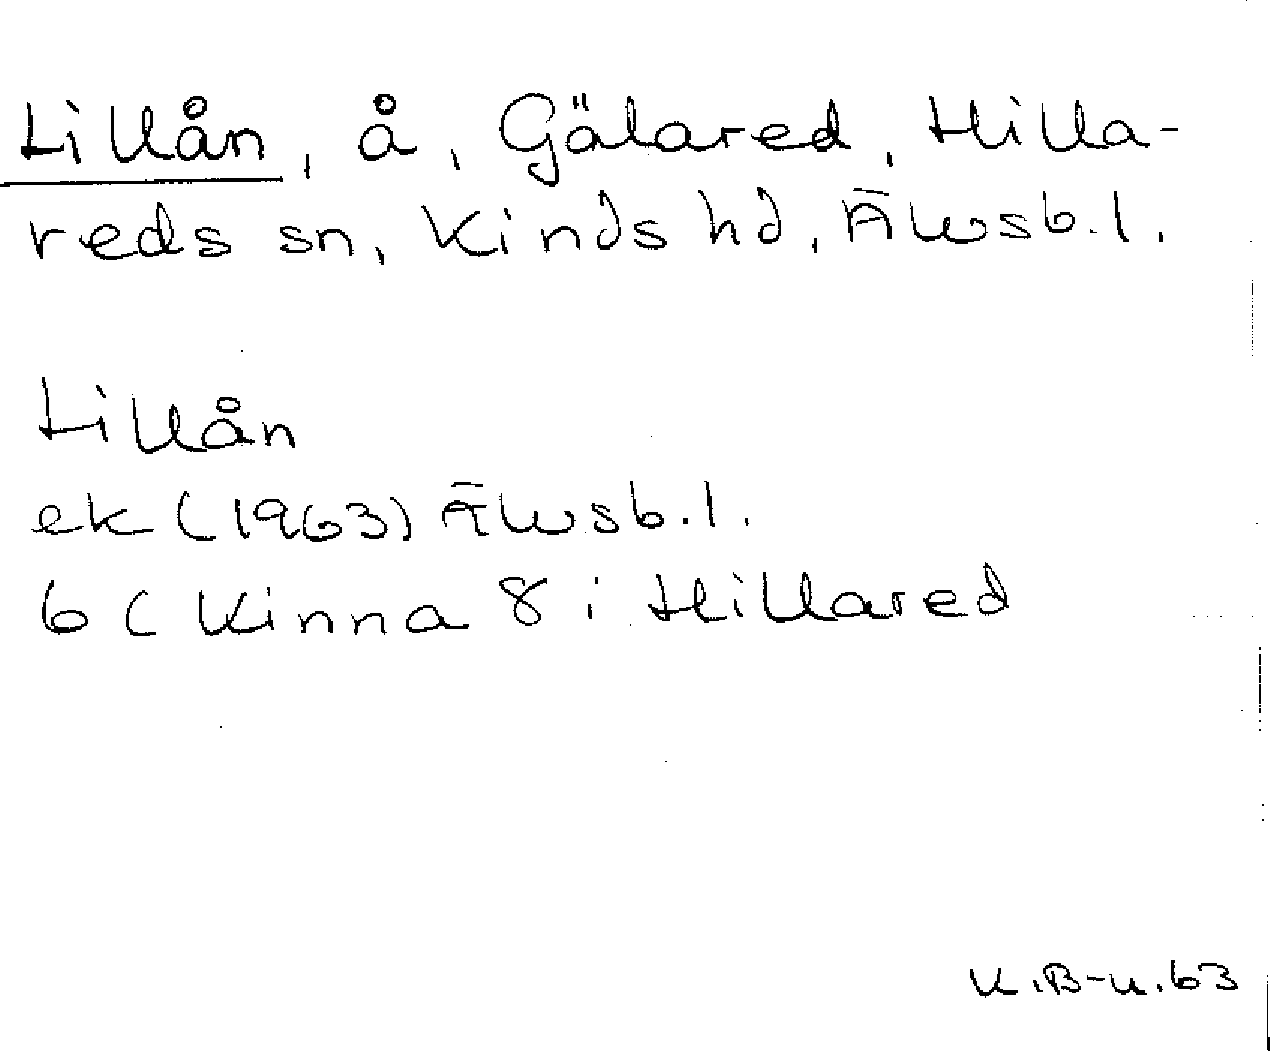 Lillån, å, Gälared, Hilla-
reds sn, Kinds hd, Älvsb.l.
Lillån
ek (1963) Älvsb.l.
6 C Kinna 8 i Hillared
K.B-n.63